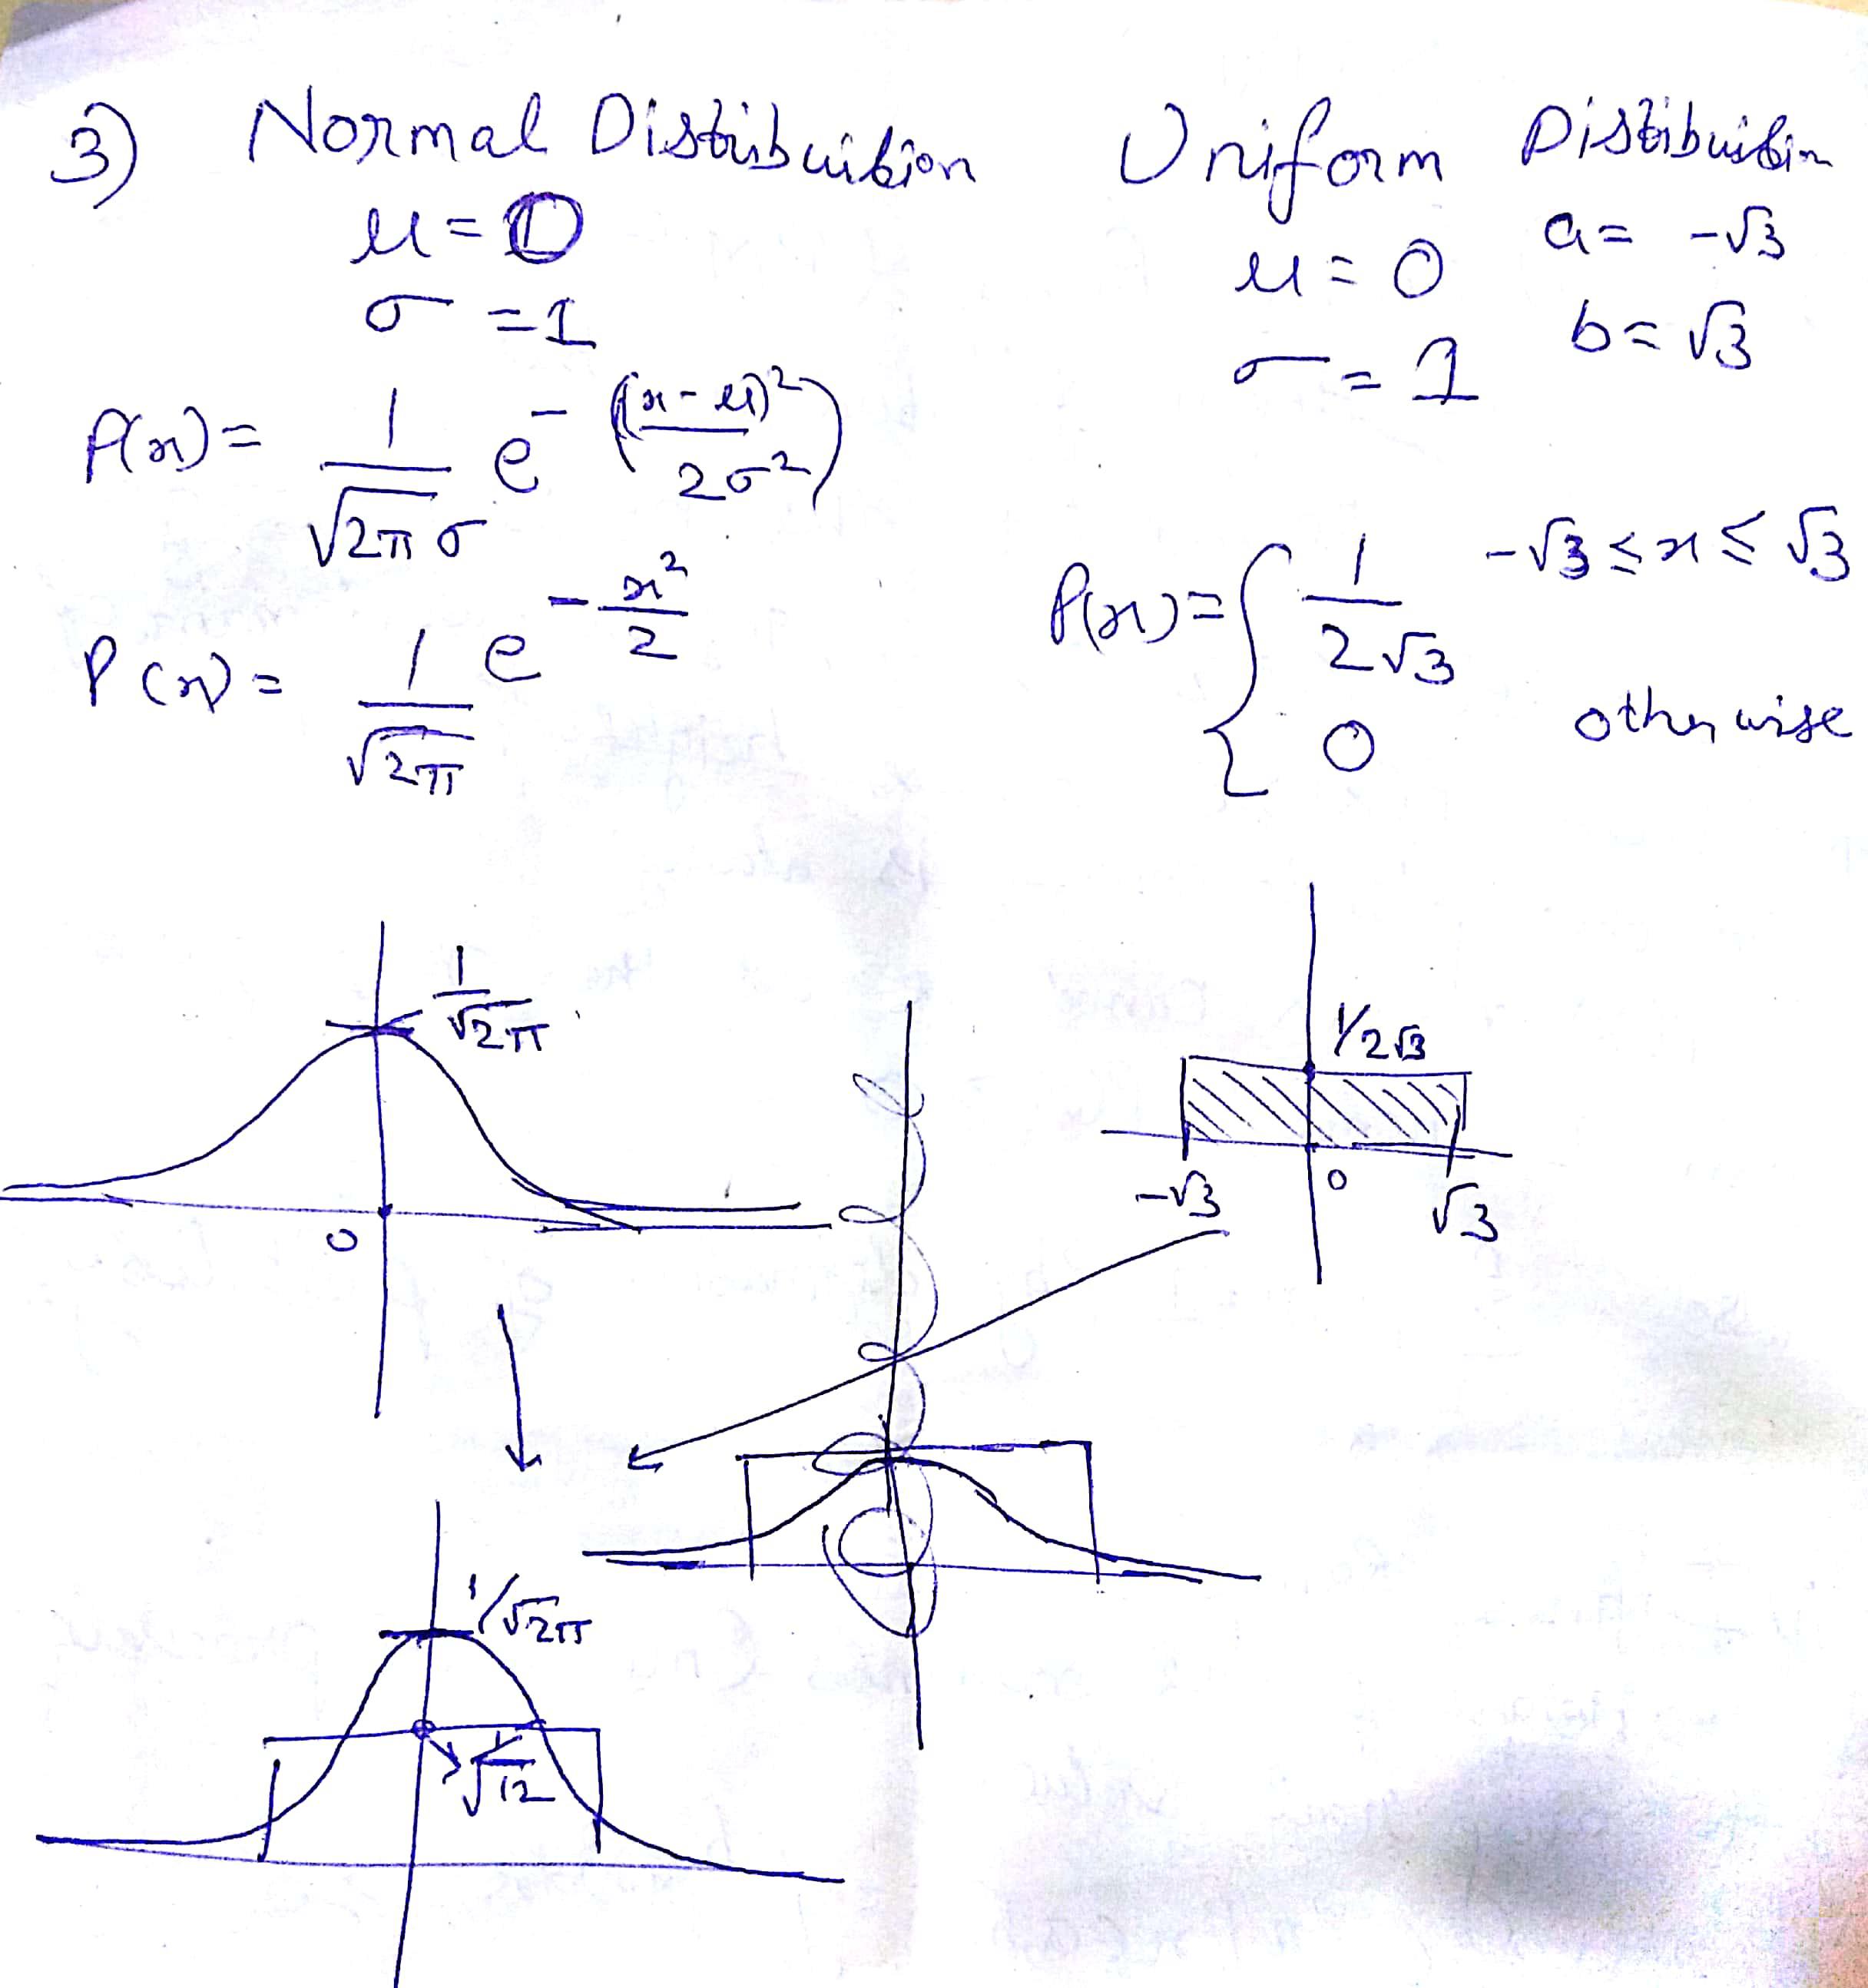 3) Normal Distribuition
μ = 0
σ = 1
P(x) = 1/√2π σ e^-((x-μ)²/2σ²)
P(x) = 1/√2π e^-x²/2
Uniform Distribuition
μ = 0 a = -√3
σ = 1 b = √3
P(x) = { 1/2√3 -√3 ≤ x ≤ √3
0 otherwise
1/√2π
0
1/2√3
-√3 0 √3
1/√2π
1/√12